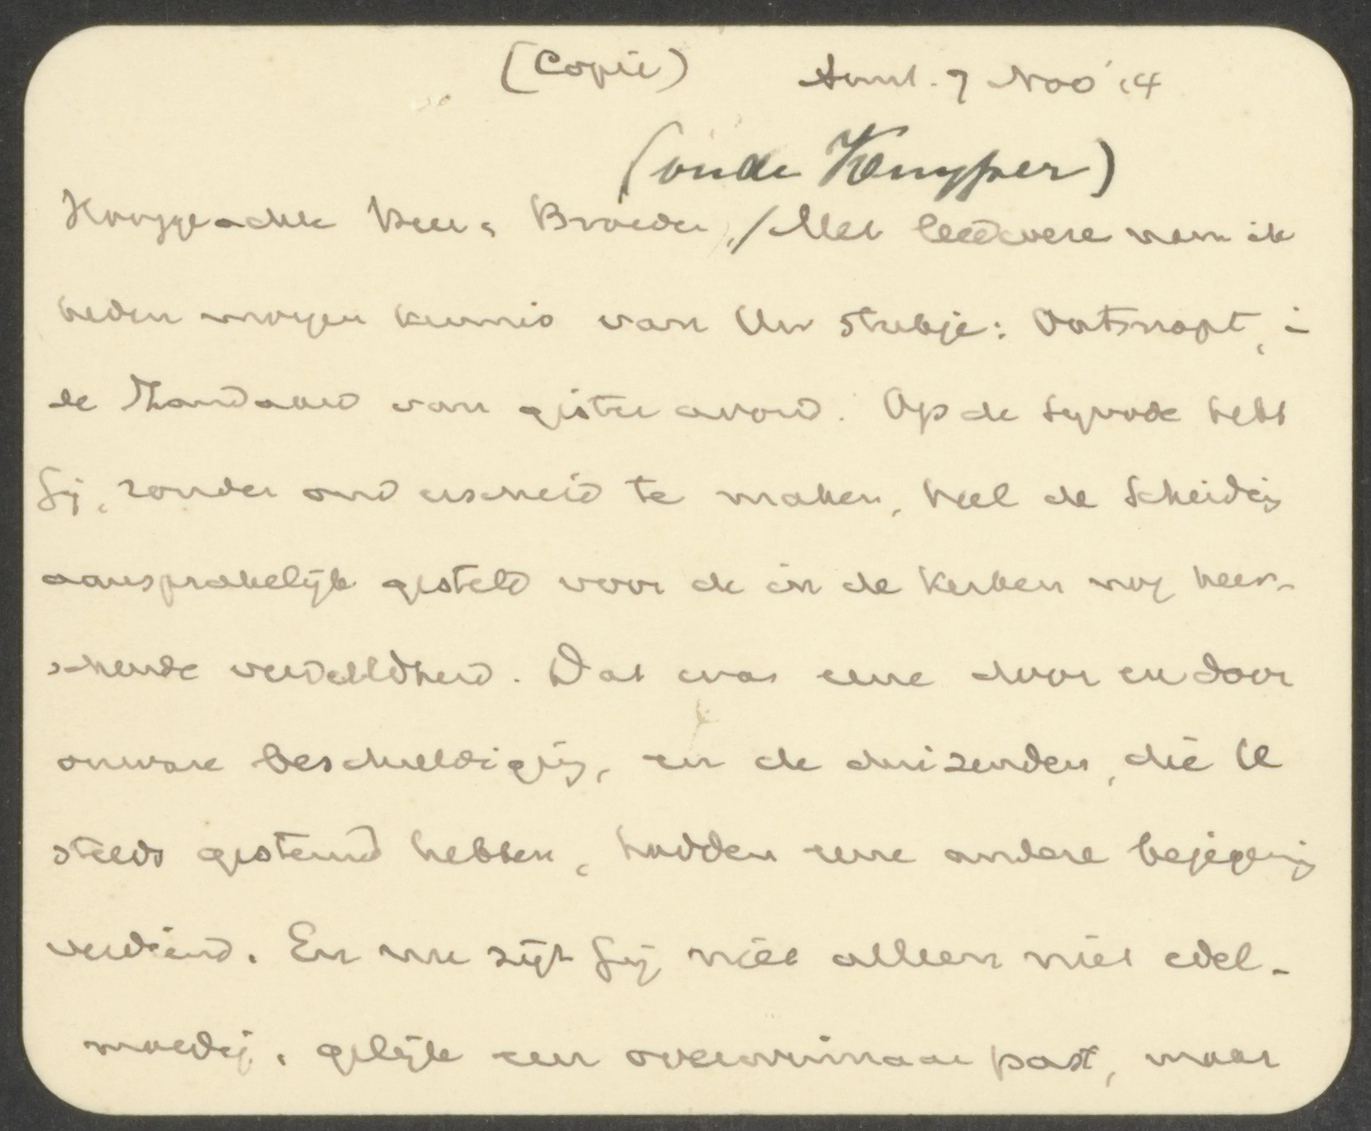 (Copie) Amst. 7 Nov '14
(oude Kuyper)
Hooggeachte Heer & Broeder, / Met leedwezen nam ik
heden morgen kennis van Uw stukje: Ontsnapt, i
de Standaard van gisteravond. Op de Synode hebt
Gij, zonder onderscheid te maken, heel de Scheiding
aansprakelijk gesteld voor de in de Kerken nog heer-
schende verdeeldheid. Dat was eene door en door
onware beschuldiging, en de duizenden, die U
steeds gesteund hebben, hadden eene andere bejegening
verdiend. En nu zijt Gij niet alleen niet edel-
moedig, gelijk een overwinnaar past, maar